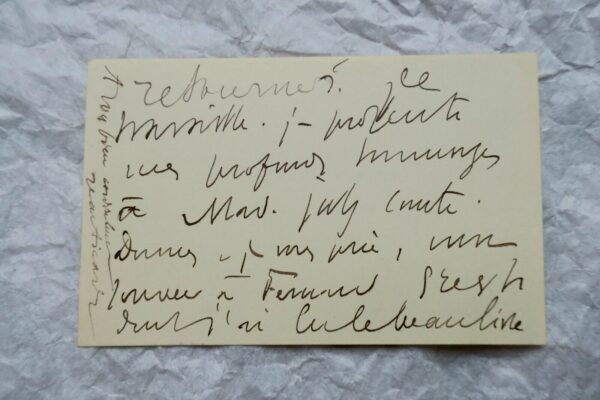 retournerez. Je
travaille. je présente
mes profonds hommages
à Mad.
Donnez, je vous prie, mon
souvenir à Fernand Gregh
dont j'ai lu le beau livre
A vous bien cordialement